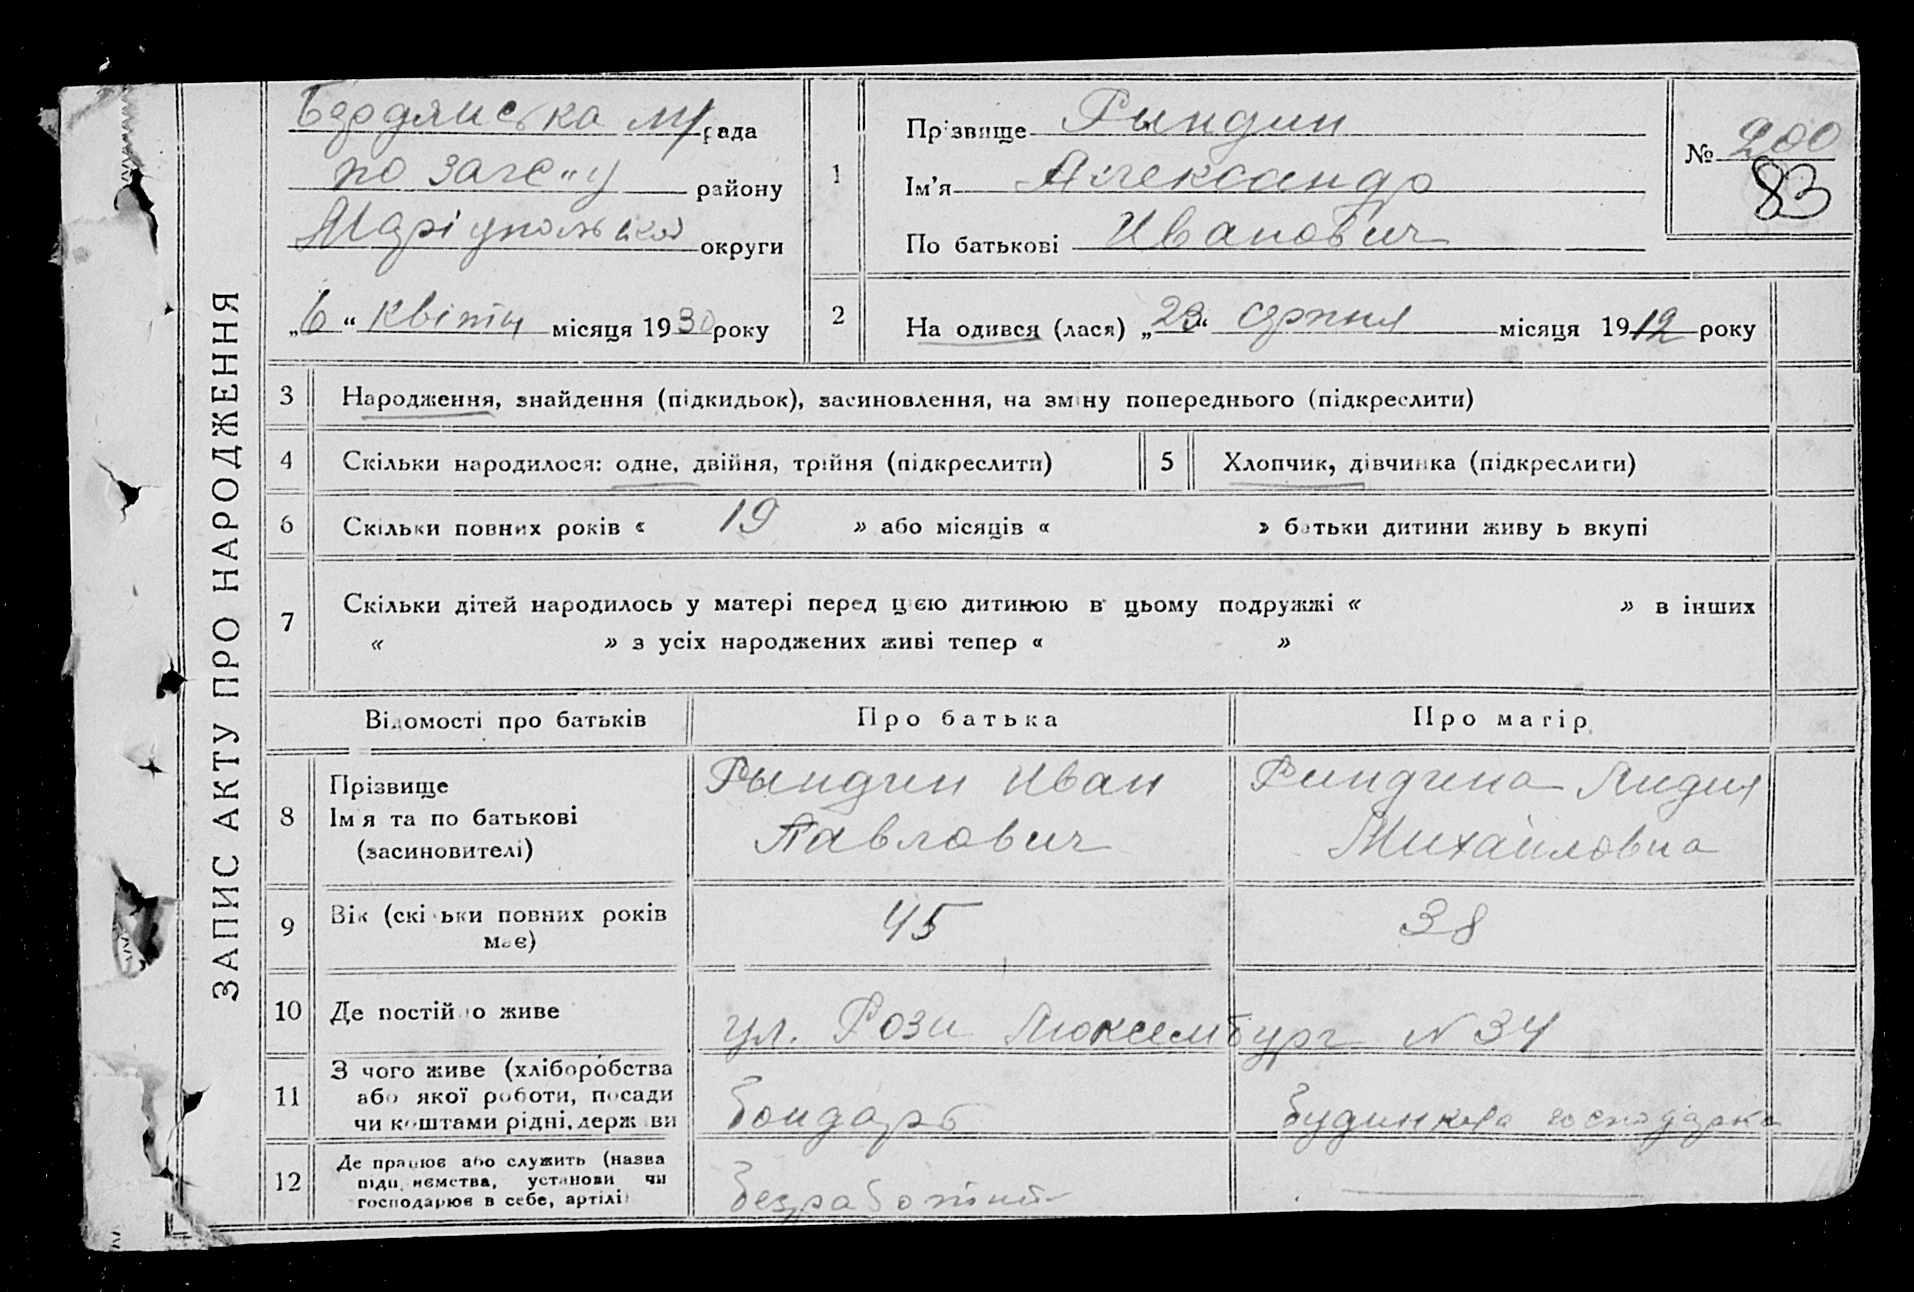 ЗАПИС АКТУ ПРО НАРОДЖЕННЯ
Бердянська м/рада
по загсу району
Маріупольської округи
„6“ квітня місяця 1930 року
1
Прізвище Рындин
Ім'я Александр
По батькові Иванович
№ 200
83
2
На одився (лася) „23“ серпня місяця 1912 року
3 Народження, знайдення (підкидьок), засиновлення, на зміну попереднього (підкреслити)
4 Скільки народилося: одне, двійня, трійня (підкреслити)
5 Хлопчик, дівчинка (підкреслити)
6 Скільки повних років « 19 » або місяців « » батьки дитини живу ь вкупі
7 Скільки дітей народилось у матері перед цією дитиною в цьому подружжі « » в інших
« » з усіх народжених живі тепер « »
Відомості про батьків Про батька Про матір
8 Прізвище
Імя та по батькові
(засиновителі)
Рындин Иван
Павлович
Риндина Лидия
Михайловна
9 Вік (скільки повних років
має)
45
38
10 Де постійно живе
ул. Рози Люксембург N 34
11 З чого живе (хліборобства
або якої роботи, посади
чи коштами рідні, держави
Бондарь
Будинкова господарка
12 Де працює або служить (назва
підприємства, установи чи
господарює в себе, артілі
Безработный